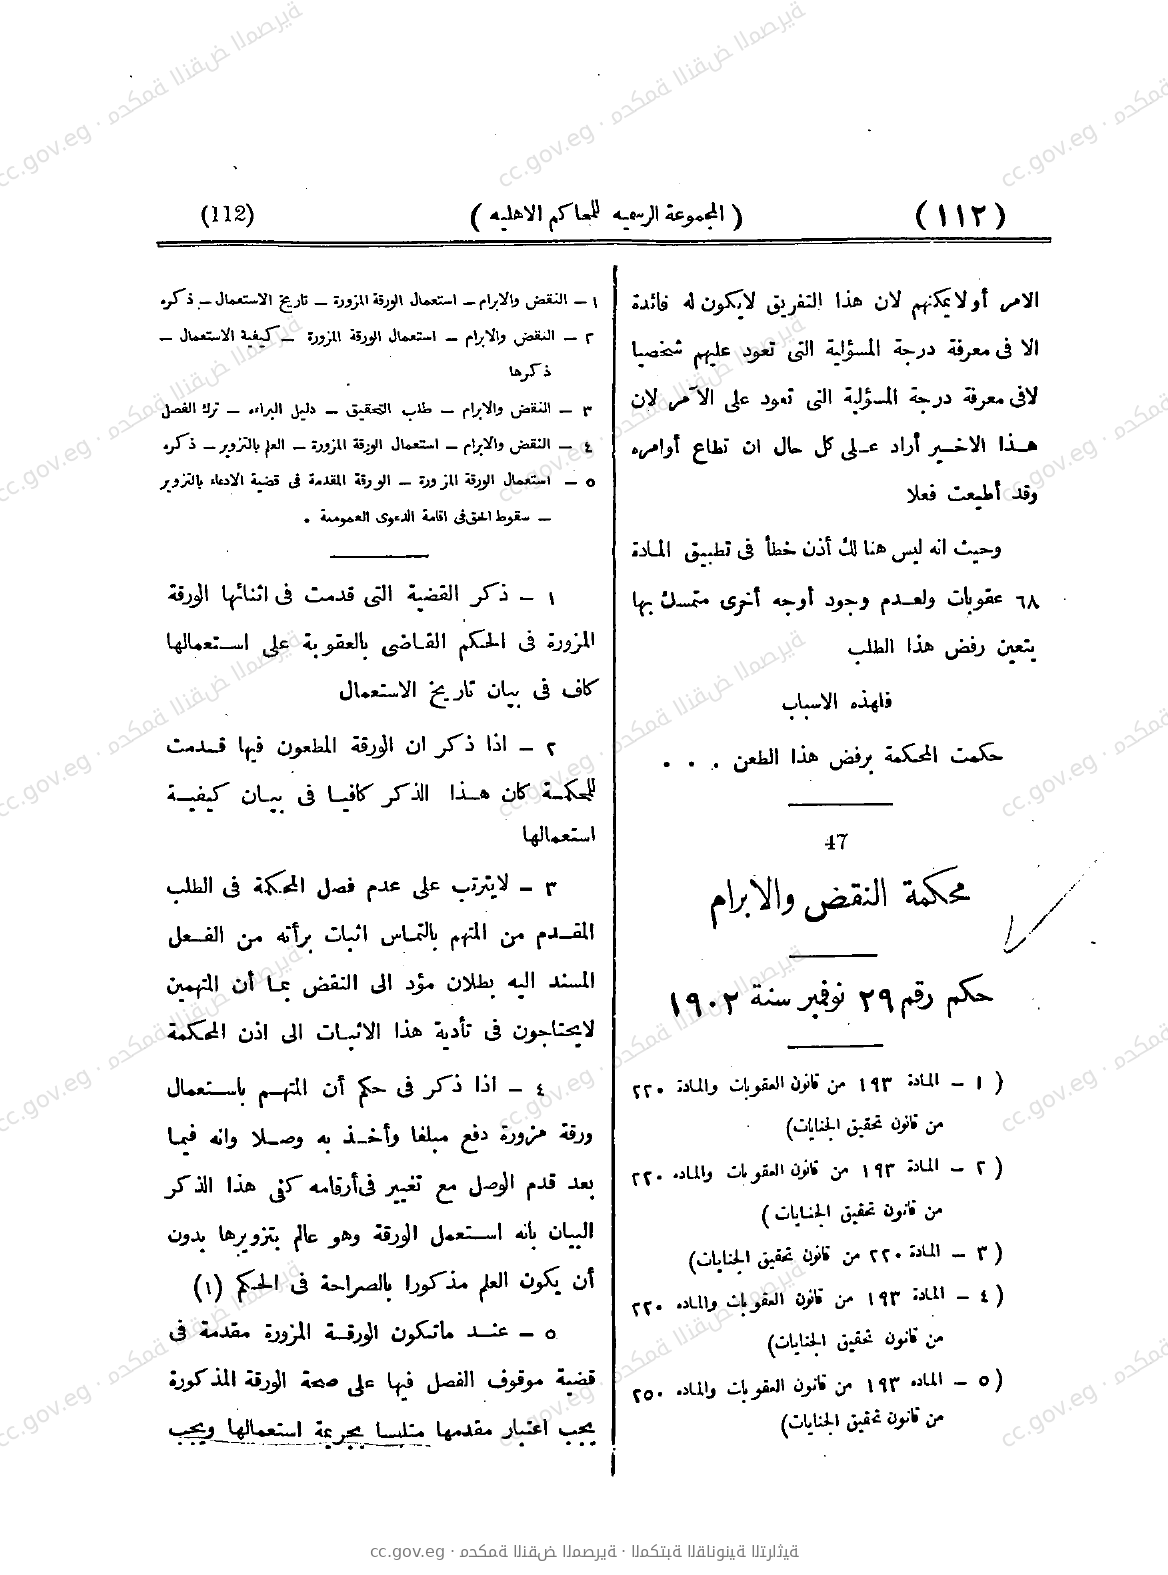 (١١٢)
( المجموعة الرسميه للمحاكم الاهليه )
(112)
الامر أولا يمكنهم لان هذا التفريق لايكون له فائدة
الا فى معرفة درجة المسؤلية التى تعود عليهم شخصيا
لافى معرفة درجة المسؤلية التى تعود على الآمر لان
هذا الاخير أراد على كل حال ان تطاع أوامره
وقد أطيعت فعلا
وحيث انه ليس هنالك أذن خطأ فى تطبيق المادة
٦٨ عقوبات ولعدم وجود أوجه أخرى متمسك بها
يتعين رفض هذا الطلب
فلهذه الاسباب
حكمت المحكمة برفض هذا الطعن . . .
47
محكمة النقض والابرام
حكم رقم ٢٩ نوفمبر سنة ١٩٠٢
( ١ – المادة ١٩٣ من قانون العقوبات والمادة ٢٢٠
من قانون تحقيق الجنايات)
( ٢ – المادة ١٩٣ من قانون العقوبات والماده ٢٢٠
من قانون تحقيق الجنايات )
( ٣ – المادة ٢٢٠ من قانون تحقيق الجنايات)
( ٤ – المادة ١٩٣ من قانون العقوبات والماده ٢٢٠
من قانون تحقيق الجنايات)
( ٥ – الماده ١٩٣ من قانون العقوبات والماده ٢٥٠
من قانون تحقيق الجنايات)
١ – النقض والابرام – استعمال الورقة المزورة – تاريخ الاستعمال – ذكره
٢ – النقض والابرام – استعمال الورقة المزورة – كيفية الاستعمال –
ذكرها
٣ – النقض والابرام – طلب التحقيق – دليل البراءه – ترك الفصل
٤ – النقض والابرام – استعمال الورقة المزورة – العلم بالتزوير – ذكره
٥ – استعمال الورقة المزورة – الورقة المقدمة فى قضية الادعاء بالتزوير
– سقوط الحق فى اقامة الدعوى العمومية .
١ – ذكر القضية التى قدمت فى اثنائها الورقة
المزورة فى الحكم القاضى بالعقوبة على استعمالها
كاف فى بيان تاريخ الاستعمال
٢ – اذا ذكر ان الورقة المطعون فيها قدمت
للمحكمة كان هذا الذكر كافيا فى بيان كيفية
استعمالها
٣ – لايترتب على عدم فصل المحكمة فى الطلب
المقدم من المتهم بالتماس اثبات برأته من الفعل
المسند اليه بطلان مؤد الى النقض بما أن المتهمين
لايحتاجون فى تأدية هذا الاثبات الى اذن المحكمة
٤ – اذا ذكر فى حكم أن المتهم باستعمال
ورقة مزورة دفع مبلغا وأخذ به وصلا وانه فيما
بعد قدم الوصل مع تغيير فى أرقامه كفى هذا الذكر
البيان بأنه استعمل الورقة وهو عالم بتزويرها بدون
أن يكون العلم مذكورا بالصراحة فى الحكم (١)
٥ – عند ماتكون الورقة المزورة مقدمة فى
قضية موقوف الفصل فيها على صحة الورقة المذكورة
يجب اعتبار مقدمها متلبسا بجريمة استعمالها ويجب
cc.gov.eg · محكمة النقض المصرية · المكتبة القانونية التراثية